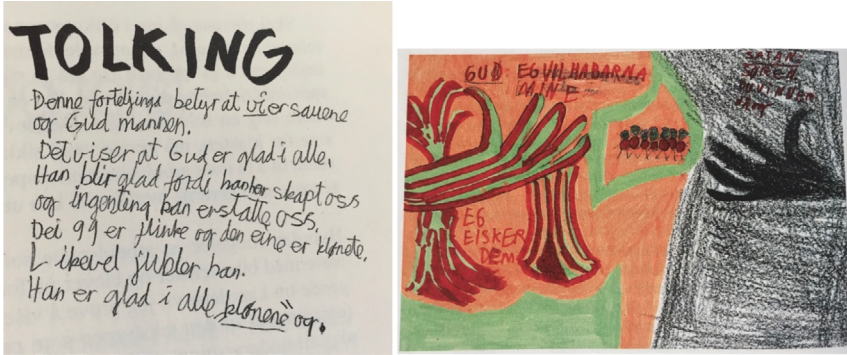 TOLKING
Denne forteljinga betyr at vi er sauene
og Gud mannen.
Det viser at Gud er glad i alle,
Han blir glad fordi han har skapt oss
og ingenting kan erstatte oss.
Dei 99 er flinke og den eine er klønete.
Likevel jubler han.
Han er glad i alle "klønene" og.
GUD: EG VIL HA BARNA
MINE
EG
ELSKER
DEM
SATAN: